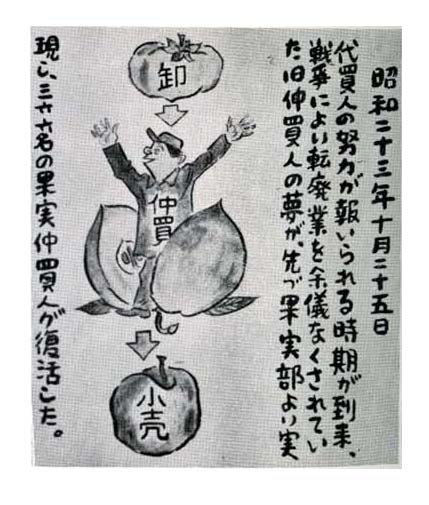 昭和二十三年十月二十五日
代買人の努力が報いられる時期が到来、
戦争により転廃業を余儀なくされてい
た旧仲買人の夢が、先づ果実部より実
卸
仲買
小売
現し、三六六名の果実仲買人が復活した。